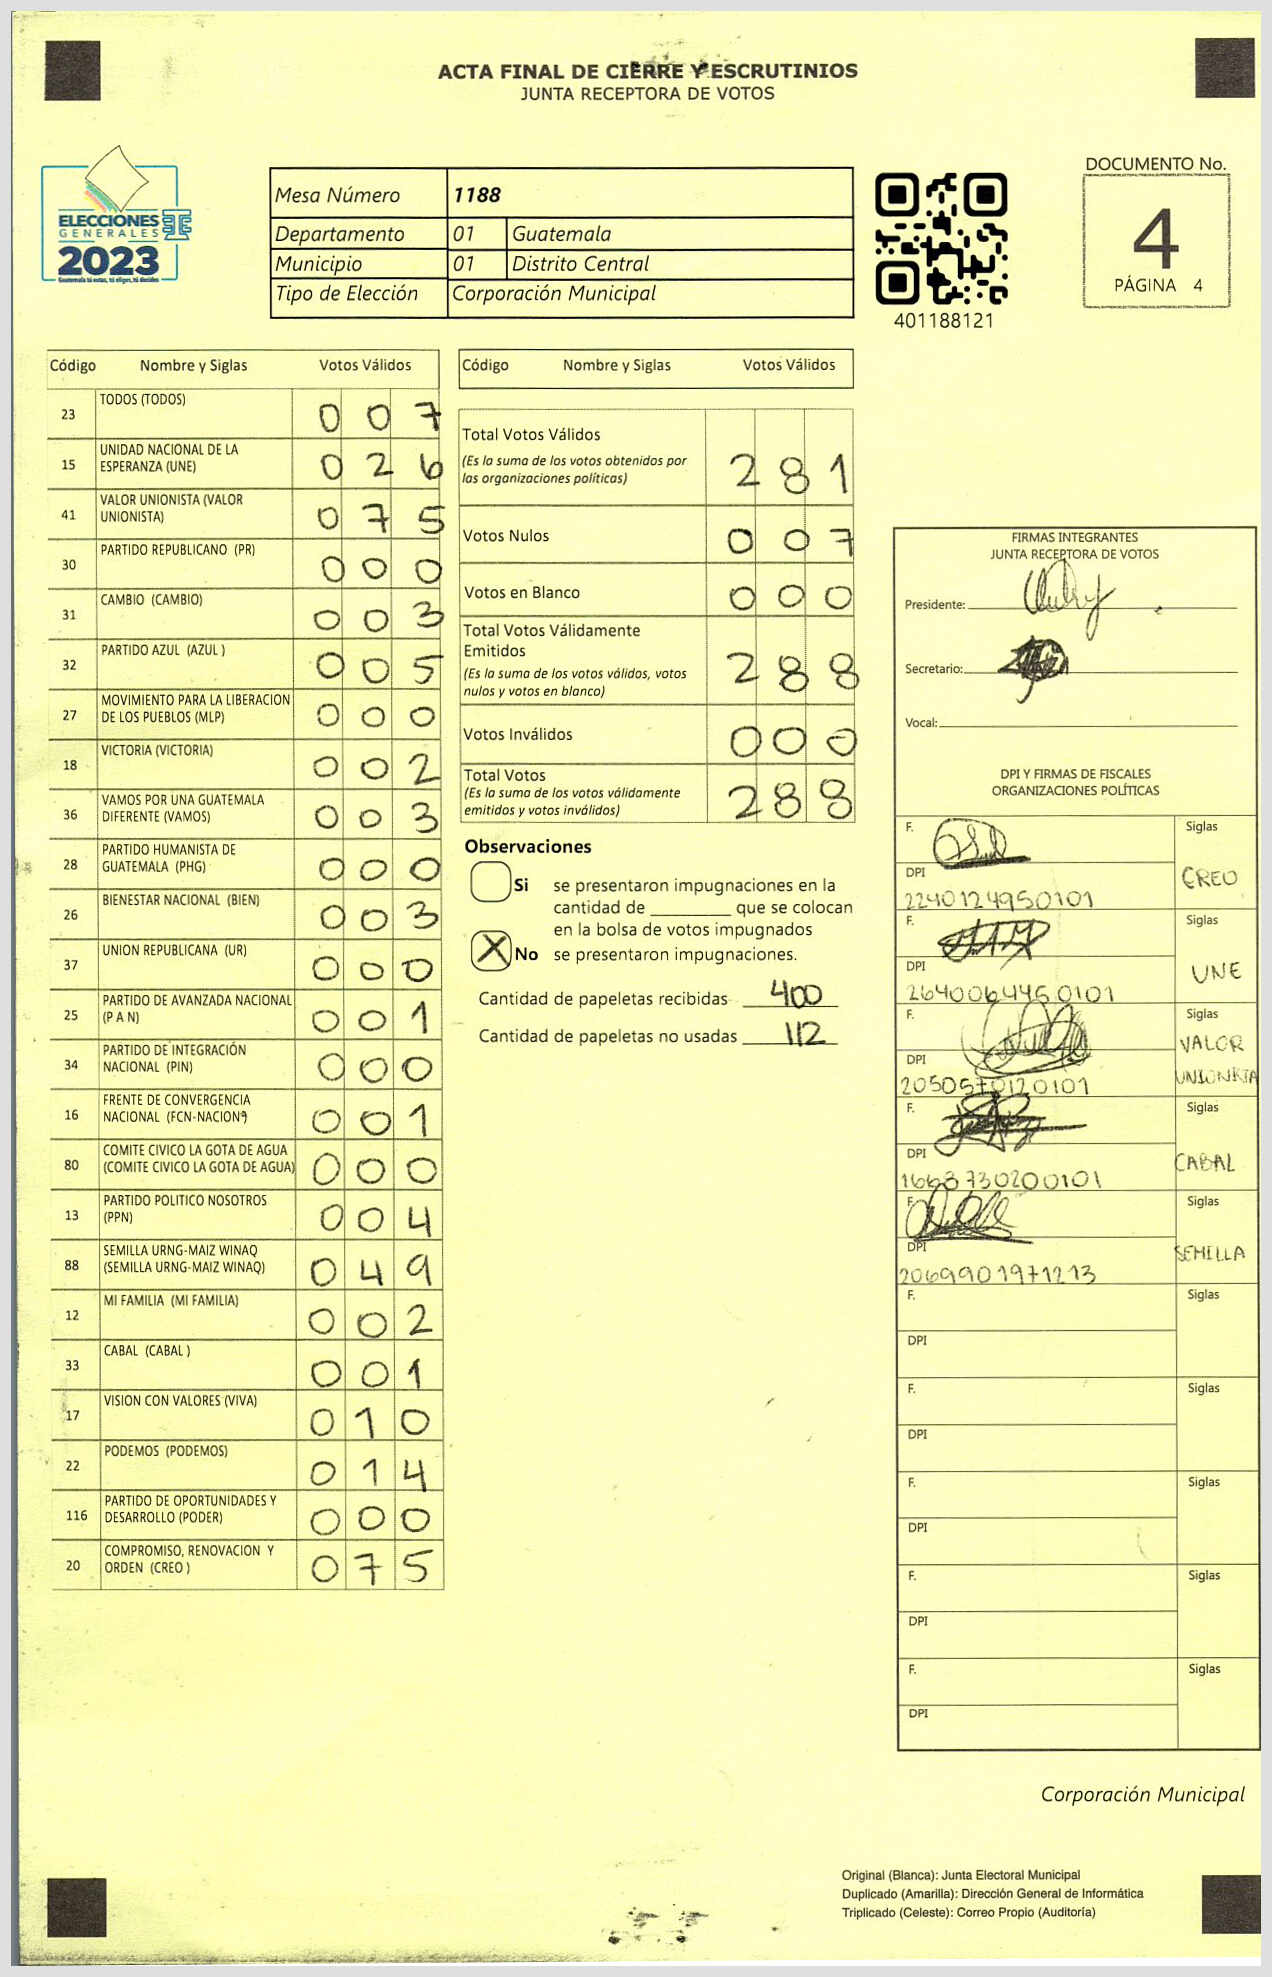 ACTA FINAL DE CIERRE Y ESCRUTINIOS
JUNTA RECEPTORA DE VOTOS
ELECCIONES
GENERALES
2023
Mesa Número 1188
Departamento 01 Guatemala
Municipio 01 Distrito Central
Tipo de Elección Corporación Municipal
401188121
DOCUMENTO No.
4
PÁGINA 4
Código Nombre y Siglas Votos Válidos
23 TODOS (TODOS) 0 0 7
15 UNIDAD NACIONAL DE LA ESPERANZA (UNE) 0 2 6
41 VALOR UNIONISTA (VALOR UNIONISTA) 0 7 5
30 PARTIDO REPUBLICANO (PR) 0 0 0
31 CAMBIO (CAMBIO) 0 0 3
32 PARTIDO AZUL (AZUL ) 0 0 5
27 MOVIMIENTO PARA LA LIBERACION DE LOS PUEBLOS (MLP) 0 0 0
18 VICTORIA (VICTORIA) 0 0 2
36 VAMOS POR UNA GUATEMALA DIFERENTE (VAMOS) 0 0 3
28 PARTIDO HUMANISTA DE GUATEMALA (PHG) 0 0 0
26 BIENESTAR NACIONAL (BIEN) 0 0 3
37 UNION REPUBLICANA (UR) 0 0 0
25 PARTIDO DE AVANZADA NACIONAL (P A N) 0 0 1
34 PARTIDO DE INTEGRACIÓN NACIONAL (PIN) 0 0 0
16 FRENTE DE CONVERGENCIA NACIONAL (FCN-NACION) 0 0 1
80 COMITE CIVICO LA GOTA DE AGUA (COMITE CIVICO LA GOTA DE AGUA) 0 0 0
13 PARTIDO POLITICO NOSOTROS (PPN) 0 0 4
88 SEMILLA URNG-MAIZ WINAQ (SEMILLA URNG-MAIZ WINAQ) 0 4 9
12 MI FAMILIA (MI FAMILIA) 0 0 2
33 CABAL (CABAL ) 0 0 1
17 VISION CON VALORES (VIVA) 0 1 0
22 PODEMOS (PODEMOS) 0 1 4
116 PARTIDO DE OPORTUNIDADES Y DESARROLLO (PODER) 0 0 0
20 COMPROMISO, RENOVACION Y ORDEN (CREO ) 0 7 5
Código Nombre y Siglas Votos Válidos
Total Votos Válidos 2 8 1
(Es la suma de los votos obtenidos por
las organizaciones políticas)
Votos Nulos 0 0 7
Votos en Blanco 0 0 0
Total Votos Válidamente
Emitidos 2 8 8
(Es la suma de los votos válidos, votos
nulos y votos en blanco)
Votos Inválidos 0 0 0
Total Votos 2 8 8
(Es la suma de los votos válidamente
emitidos y votos inválidos)
Observaciones
Si se presentaron impugnaciones en la
cantidad de ________ que se colocan
en la bolsa de votos impugnados
X No se presentaron impugnaciones.
Cantidad de papeletas recibidas 400
Cantidad de papeletas no usadas 112
FIRMAS INTEGRANTES
JUNTA RECEPTORA DE VOTOS
Presidente:
Secretario:
Vocal:
DPI Y FIRMAS DE FISCALES
ORGANIZACIONES POLÍTICAS
F. Siglas
CREO
DPI
2240124950101
F. Siglas
UNE
DPI
2640064460101
F. Siglas
VALOR
UNIONISTA
DPI
2050570120101
F. Siglas
CABAL
DPI
1668730200101
F. Siglas
SEMILLA
DPI
2069901971213
F. Siglas
DPI
F. Siglas
DPI
F. Siglas
DPI
F. Siglas
DPI
F. Siglas
DPI
Corporación Municipal
Original (Blanca): Junta Electoral Municipal
Duplicado (Amarilla): Dirección General de Informática
Triplicado (Celeste): Correo Propio (Auditoría)